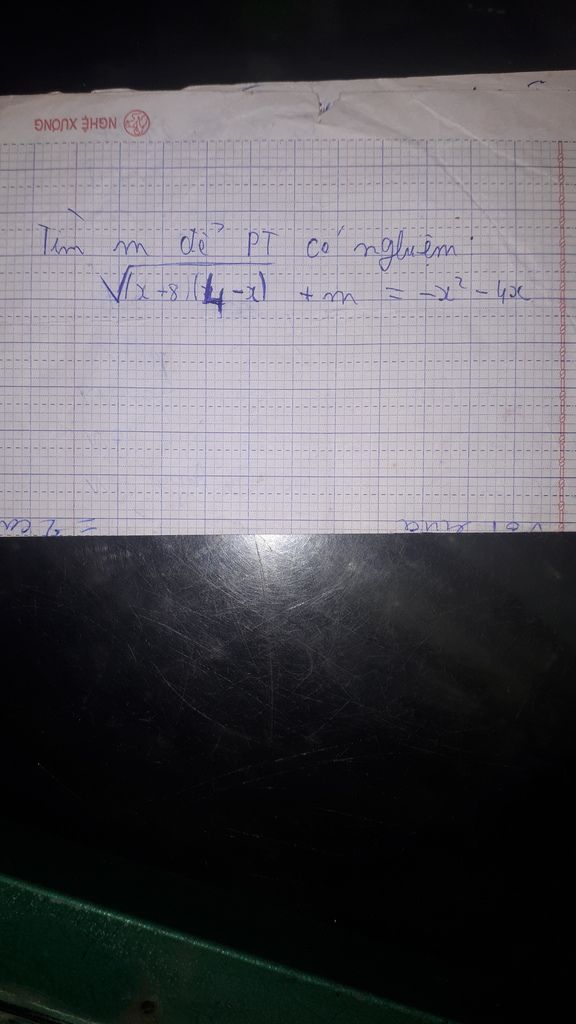 NGHỆ XƯƠNG
Tìm m để PT có nghiệm:
√(x+8)(4-x) + m = -x² - 4x